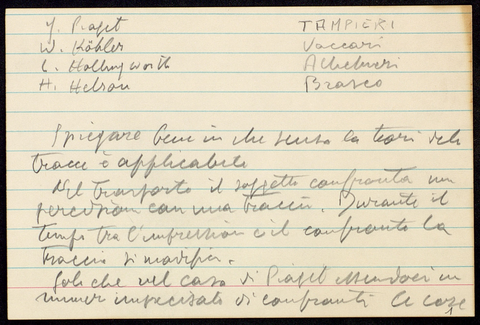 J. Piaget
W. Köhler
L. Hollingworth
H. Helson
TAMPIERI
Vaccari
Brasco
Spiegare bene in che senso la teori delle
tracce è applicabile
Nel trasporto il soggetto confronta una
percezion con una traccia. Durante il
tempo tra l'impression e il confronto la
traccia si modifica.
Solo che nel caso di Piaget essendoci un
numer imprecisato di confronti le cose